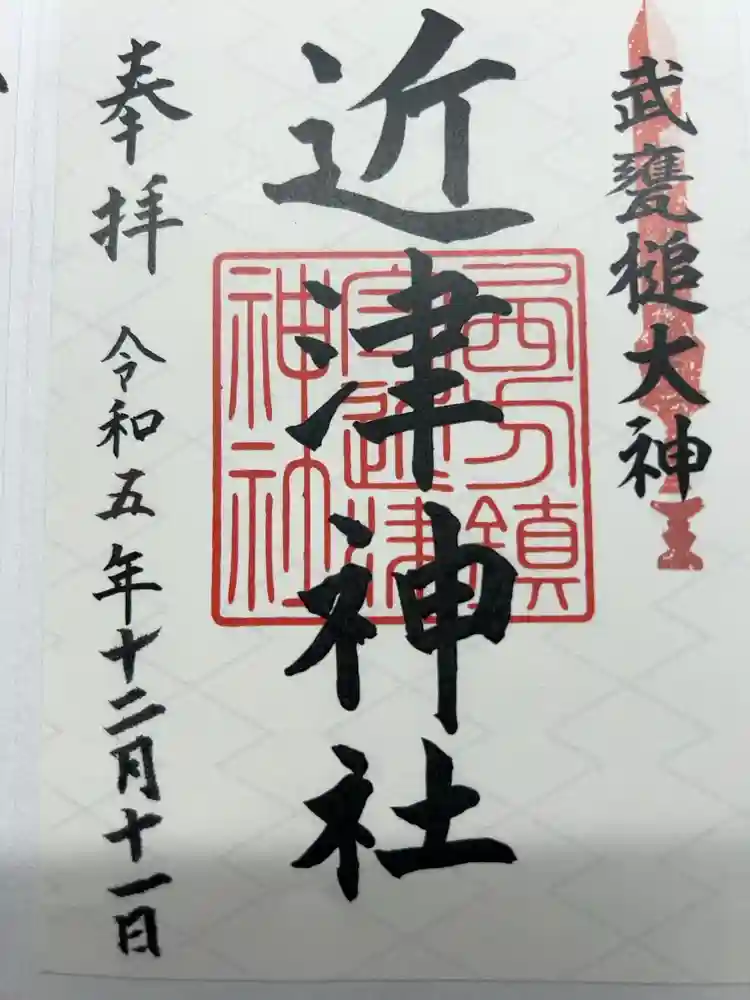 武甕槌大神
近津神社
西方鎮
守近津
神社
奉拝
令和五年十二月十一日